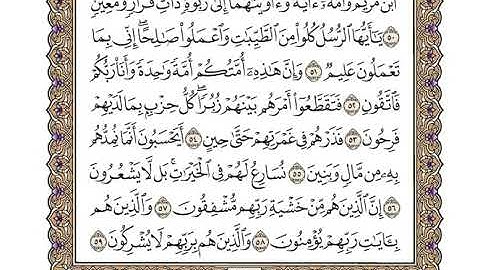 ٱبۡنَ مَرۡيَمَ وَأُمَّهُۥٓ ءَايَةٗ وَءَاوَيۡنَٰهُمَآ إِلَىٰ رَبۡوَةٖ ذَاتِ قَرَارٖ وَمَعِينٖ
٥٠ يَٰٓأَيُّهَا ٱلرُّسُلُ كُلُواْ مِنَ ٱلطَّيِّبَٰتِ وَٱعۡمَلُواْ صَٰلِحًاۖ إِنِّي بِمَا
تَعۡمَلُونَ عَلِيمٞ ٥١ وَإِنَّ هَٰذِهِۦٓ أُمَّتُكُمۡ أُمَّةٗ وَٰحِدَةٗ وَأَنَا۠ رَبُّكُمۡ
فَٱتَّقُونِ ٥٢ فَتَقَطَّعُوٓاْ أَمۡرَهُم بَيۡنَهُمۡ زُبُرٗاۖ كُلُّ حِزۡبِۭ بِمَا لَدَيۡهِمۡ
فَرِحُونَ ٥٣ فَذَرۡهُمۡ فِي غَمۡرَتِهِمۡ حَتَّىٰ حِينٍ ٥٤ أَيَحۡسَبُونَ أَنَّمَا نُمِدُّهُم
بِهِۦ مِن مَّالٖ وَبَنِينَ ٥٥ نُسَارِعُ لَهُمۡ فِي ٱلۡخَيۡرَٰتِۚ بَل لَّا يَشۡعُرُونَ
٥٦ إِنَّ ٱلَّذِينَ هُم مِّنۡ خَشۡيَةِ رَبِّهِم مُّشۡفِقُونَ ٥٧ وَٱلَّذِينَ هُم
بِـَٔايَٰتِ رَبِّهِمۡ يُؤۡمِنُونَ ٥٨ وَٱلَّذِينَ هُم بِرَبِّهِمۡ لَا يُشۡرِكُونَ ٥٩